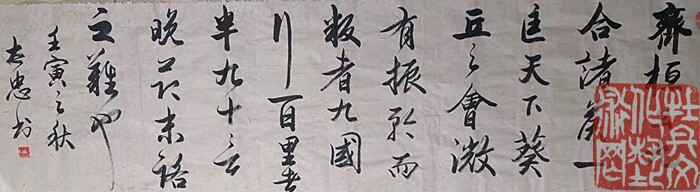 齊桓九
合諸侯一
匡天下葵
丘之會微
有振矜而
叛者九國
行百里者
半九十言
晚節末路
之難也
壬寅之秋
志忠书